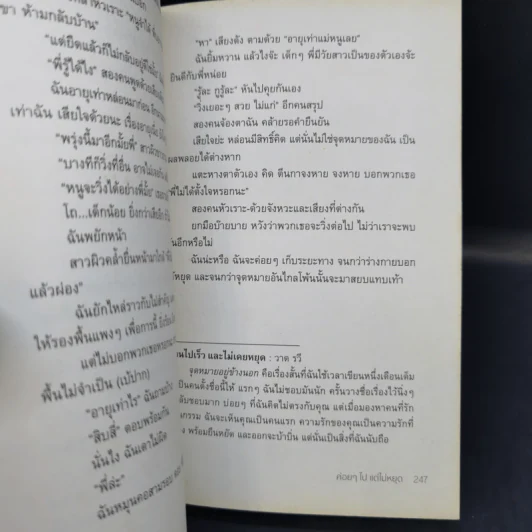 ขา ห้ามกลับบ้าน"
"แต่ยืดแล้วก็ไม่กลับอยู่ดี
"พี่รู้ได้ไง" สองคนพูดด้วย
ฉันอายุเท่าหล่อนมาก่อน
เท่าฉัน เสียใจด้วยนะ
"พรุ่งนี้มาอีกมั้ยพี่"
"บางทีก็วิ่งที่อื่น
"หนูจะวิ่งได้อย่างพี่มั้ย"
โถ...เด็กน้อย
ฉันพยักหน้า
สาวผิวคล้ำยื่นหน้ามา
แล้วผ่อง"
ฉันยักไหล่ราวกับไม่สำคัญ
ให้รองพื้นแพงๆ เพื่อการนี้
แต่ไม่บอกพวกเธอหรอก
พื้นไม่จำเป็น (เบ้ปาก)
"อายุเท่าไร"
"สิบสี่" ตอบพร้อมกัน
นั่นไง ฉันเดาไม่ผิด
"พี่ล่ะ"
ฉันหมุนคอสามรอบ
"หา" เสียงดัง ตามด้วย "อายุเท่าแม่หนูเลย"
ฉันยิ้มหวาน แล้วไงจ๊ะ เด็กๆ พี่มีวัยสาวเป็นของตัวเองจ้ะ
ยินดีกับพี่หน่อย
"รู้ละ กูรู้ละ" หันไปคุยกันเอง
"วิ่งเยอะๆ สวย ไม่แก่" อีกคนสรุป
สองคนจ้องตาฉัน คล้ายรอคำยืนยัน
เสียใจย่ะ หล่อนมีสิทธิ์คิด แต่นั่นไม่ใช่จุดหมายของฉัน เป็น
ผลพลอยได้ต่างหาก
แตะหางตาตัวเอง คิด ตีนกาจงหาย จงหาย บอกพวกเธอ
พี่ไม่ได้ตั้งใจหรอกนะ"
สองคนหัวเราะ-ด้วยจังหวะและเสียงที่ต่างกัน
ยกมือบ๊ายบาย หวังว่าพวกเธอจะวิ่งต่อไป ไม่ว่าเราจะพบ
นอีกหรือไม่
ฉันน่ะหรือ ฉันจะค่อยๆ เก็บระยะทาง จนกว่าร่างกายบอก
ห้หยุด และจนกว่าจุดหมายอันไกลโพ้นนั้นจะมาสยบแทบเท้า
นไปเร็ว และไม่เคยหยุด : วาด รวี
จุดหมายอยู่ข้างนอก คือเรื่องสั้นที่ฉันใช้เวลาเขียนหนึ่งเดือนเต็ม
เป็นคนตั้งชื่อนี้ให้ แรกๆ ฉันไม่ชอบมันนัก ครั้นวางชื่อเรื่องไว้นิ่งๆ
ฉันชอบมาก บ่อยๆ ที่ฉันคิดไม่ตรงกับคุณ แต่เมื่อมองหาคนที่รัก
ณกรรม ฉันจะเห็นคุณเป็นคนแรก ความรักของคุณเป็นความรักที่
ง พร้อมยืนหยัด และออกจะบ้าบิ่น แต่นั่นเป็นสิ่งที่ฉันนับถือ
ค่อยๆ ไป แต่ไม่หยุด 247